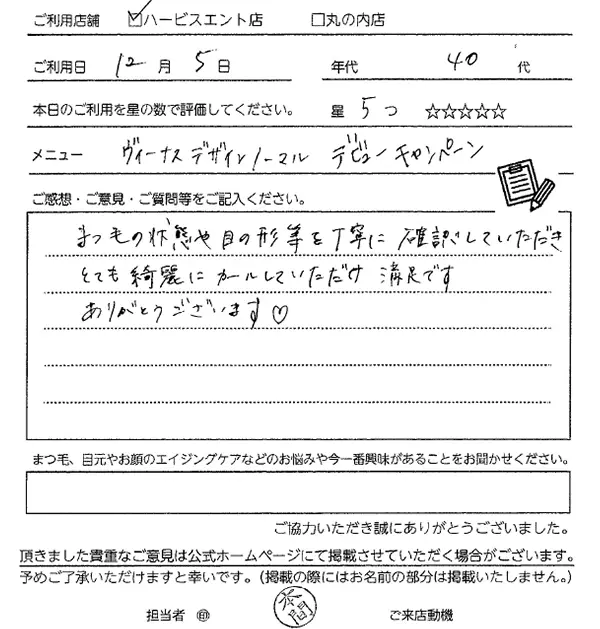 ご利用店舗 ☑ハービスエント店 □丸の内店
ご利用日 12月 5日 年代 40 代
本日のご利用を星の数で評価してください。 星 5つ ☆☆☆☆☆
メニュー ヴィーナスデザインノーマル デビューキャンペーン
ご感想・ご意見・ご質問等をご記入ください。
まつ毛の状態や目の形等を丁寧に確認していただき
とても綺麗にカールしていただけ満足です
ありがとうございます♡
まつ毛、目元やお顔のエイジングケアなどのお悩みや今一番興味があることをお聞かせください。
ご協力いただき誠にありがとうございました。
頂きました貴重なご意見は公式ホームページにて掲載させていただく場合がございます。
予めご了承いただけますと幸いです。(掲載の際にはお名前の部分は掲載いたしません。)
担当者 ㊞ 本間 ご来店動機